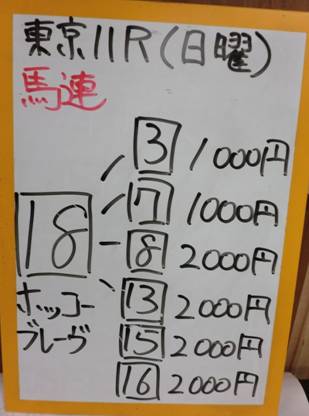 東京11R(日曜)
馬連
3 1000円
7 1000円
18 8 2000円
ホッコー 13 2000円
ブレーヴ 15 2000円
16 2000円